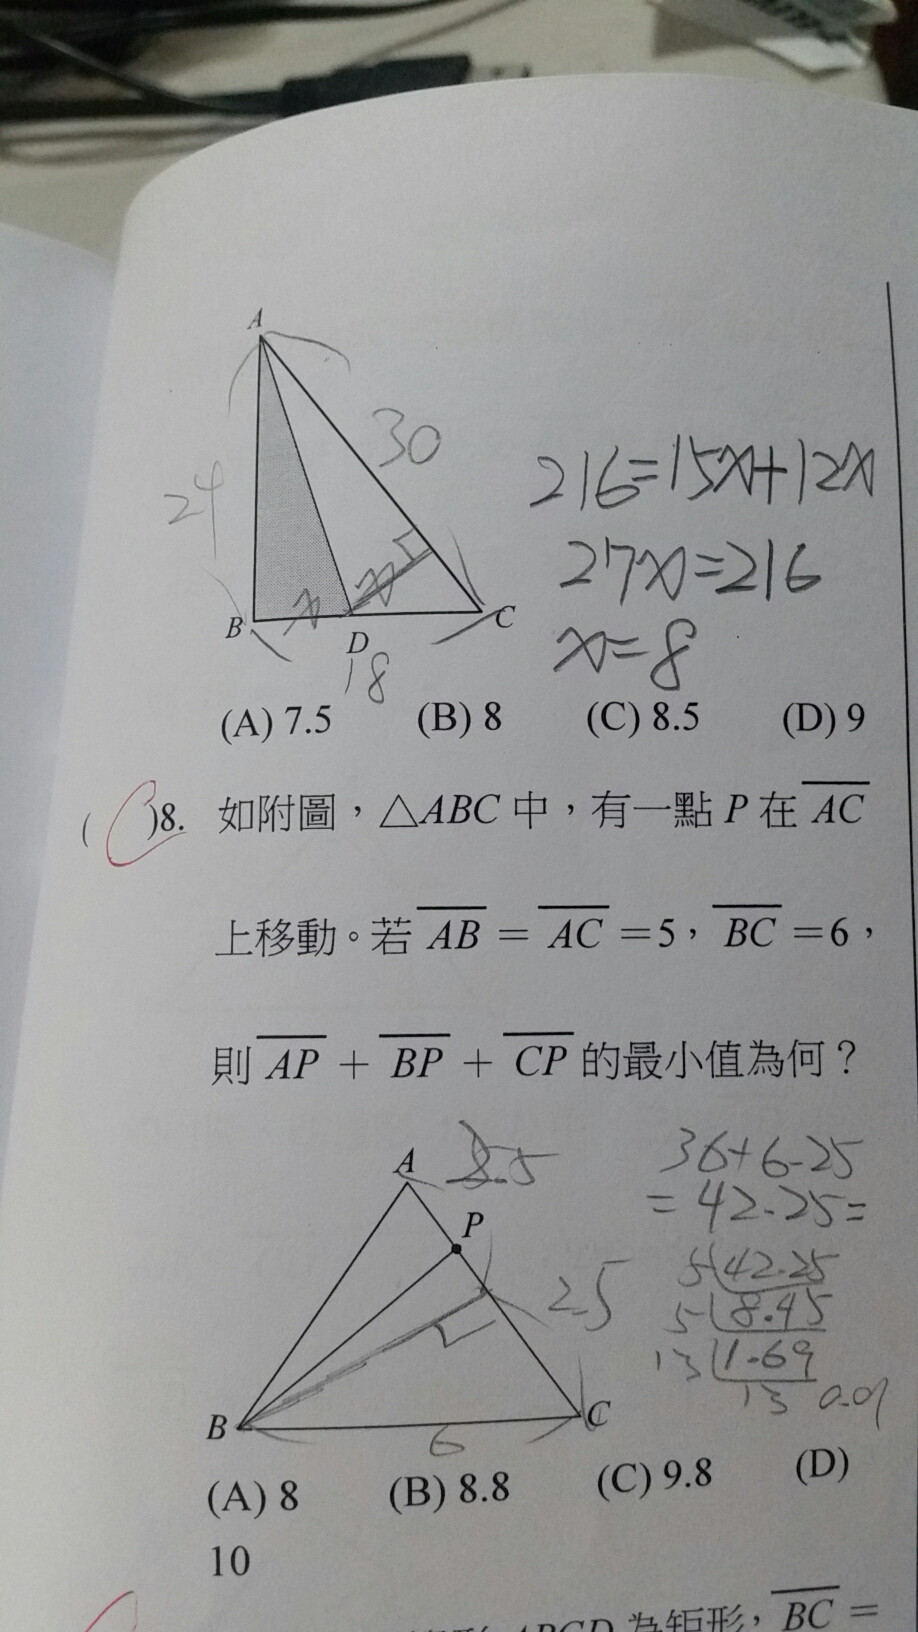 A
30
24
216=15x+12x
27x=216
x=8
x
x
B
D
C
18
(A) 7.5 (B) 8 (C) 8.5 (D) 9
( )8. 如附圖，△ABC 中，有一點 P 在 AC
上移動。若 AB = AC =5， BC =6，
則 AP + BP + CP 的最小值為何？
A
8.5
P
36+6.25
=42.25=
2.5
5 42.25
5 8.45
13 1.69
13 0.01
B
6
C
(A) 8 (B) 8.8 (C) 9.8 (D)
10
ABCD 為矩形， BC =